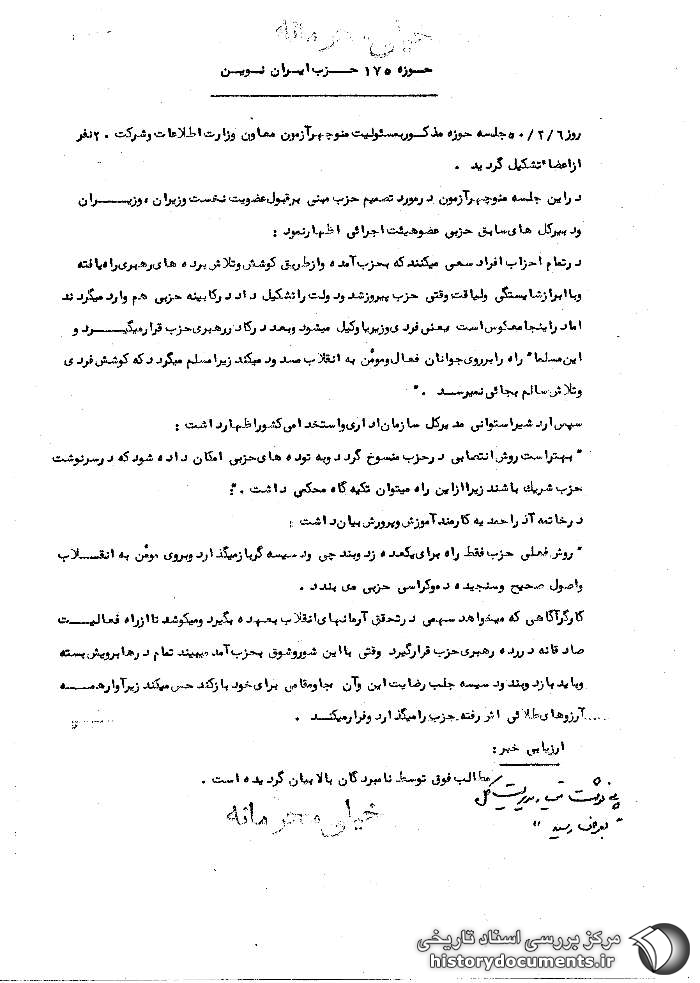 خیلی محرمانه
حوزه ۱۷۵ حزب ایران نوین
روز ۵۰/۲/۶ جلسه حوزه مذکور بمسئولیت منوچهر آزمون معاون وزارت اطلاعات و شرکت ۲۰ نفر
از اعضاء تشکیل گردید .
در این جلسه منوچهر آزمون در مورد تصمیم حزب مبنی بر قبول عضویت نخست وزیران ، وزیران
و دبیرکل های سابق حزبی عضو هیئت اجرائی اظهار نمود :
در تمام احزاب افراد سعی میکنند که بحزب آمده و از طریق کوشش و تلاش برده های رهبری راه یافته
و با ابراز شایستگی و لیاقت وقتی حزب پیروز شد و دولت را تشکیل داد در کابینه حزبی هم وارد میگردند
اما در اینجا معکوس است یعنی فردی وزیر یا وکیل میشود و بعد در کادر رهبری حزب قرار میگیرد و
این مسلما" راه را بر روی جوانان فعال و مومُن به انقلاب مسدود میکند زیرا مسلم میگردد که کوشش فردی
و تلاش سالم بجائی نمیرسد . "
سپس اردشیر استوانی مدیرکل سازمان اداری و استخدامی کشور اظهار داشت :
" بهتر است روش انتصابی در حزب منسوخ گردد و به توده های حزبی امکان داده شود که در سرنوشت
حزب شریك باشند زیرا از این راه میتوان تکیه گاه محکمی داشت . "
در خاتمه آذر احمدیه کارمند آموزش و پرورش بیان داشت :
" روش فعلی حزب فقط راه برای یکعده زد و بند چی و دسیسه گر باز میگذارد و بروی مومُن به انقلاب
و اصول صحیح و سنجیده دموکراسی حزبی می بندد .
کارگر آگاهی که میخواهد سهمی در تحقق آرمانهای انقلاب بعهده بگیرد و میکوشد تا از راه فعالیت
صادقانه در رده رهبری حزب قرار گیرد وقتی با این شور و شوق بحزب آمد میبیند تمام درها برویش بسته
و باید با زد و بند و دسیسه جلب رضایت این و آن جا و مقامی برای خود باز کند حس میکند زیر آوار همه
آرزوهای طلائی اش رفته حزب را میگذارد و فرار میکند .
ارزیابی خبر :
مطالب فوق توسط نامبردگان بالا بیان گردیده است .
پی نوشت تیمسار مدیریت کل
" بعرض رسید "
خیلی محرمانه
مرکز بررسی اسناد تاریخی
historydocuments.ir